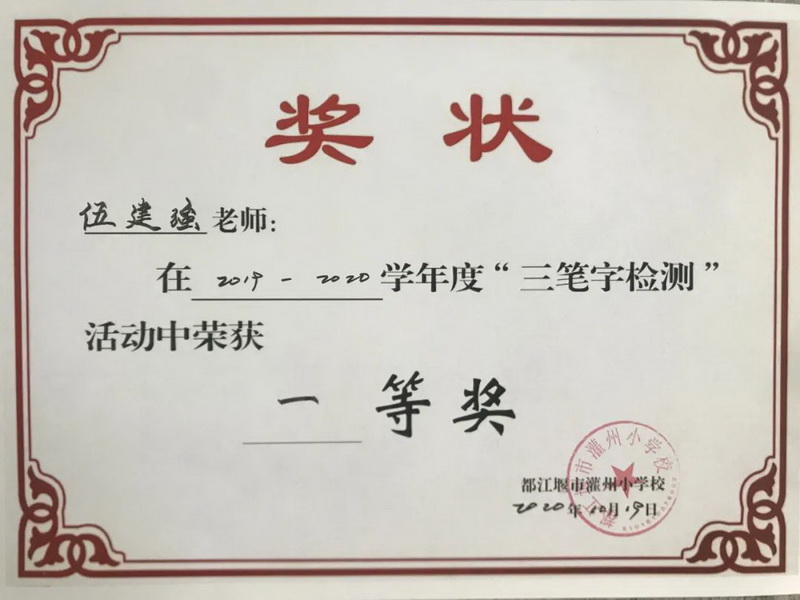 奖 状
伍建强老师:
在 2019-2020 学年度“三笔字检测”
活动中荣获
一等奖
都江堰市灌州小学校
都江堰市灌州小学校
2020年10月19日